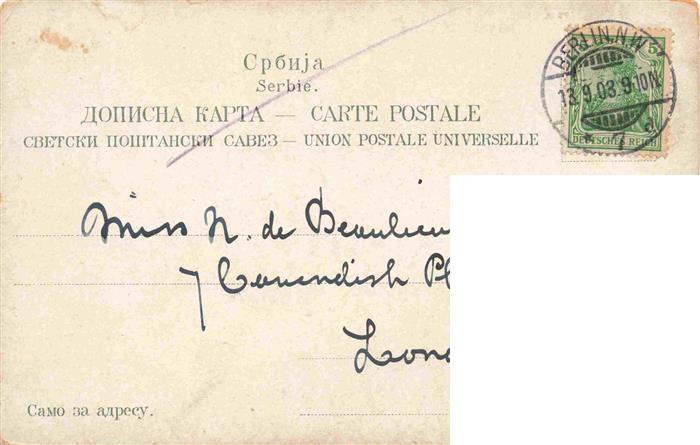 Србија
Serbie.
ДОПИСНА КАРТА — CARTE POSTALE
СВЕТСКИ ПОШТАНСКИ САВЕЗ — UNION POSTALE UNIVERSELLE
BERLIN. N.W.
13.9.03 9-10N
7 a
5
DEUTSCHES REICH
Miss N. de Beaulieu
7 Cavendish Pl
Lon
Само за адресу.